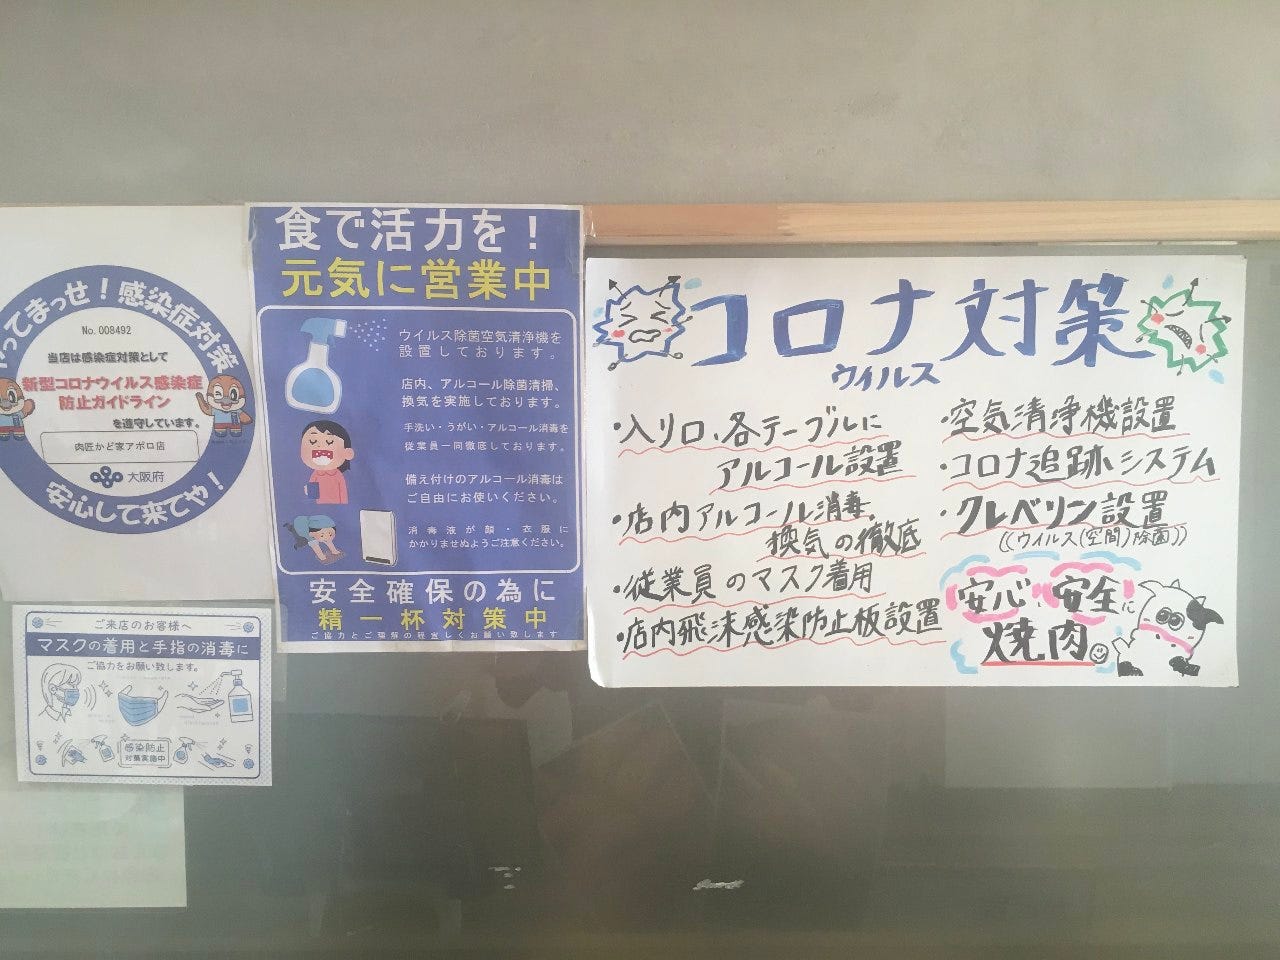 ってまっせ！感染症対策
No. 008492
当店は感染症対策として
新型コロナウイルス感染症
防止ガイドライン
を遵守しています。
肉匠かど家アポロ店
大阪府
安心して来てや！
ご来店のお客様へ
マスクの着用と手指の消毒に
ご協力をお願い致します。
感染防止
対策実施中
食で活力を！
元気に営業中
ウイルス除菌空気清浄機を
設置しております。
店内、アルコール除菌清掃、
換気を実施しております。
手洗い・うがい・アルコール消毒を
従業員一同徹底しております。
備え付けのアルコール消毒は
ご自由にお使いください。
消毒液が顔・衣服に
かかりませぬようご注意ください。
安全確保の為に
精一杯対策中
ご協力とご理解の程宜しくお願い致します
コロナ対策
ウイルス
・入り口、各テーブルに
アルコール設置
・店内アルコール消毒、
換気の徹底
・従業員のマスク着用
・店内飛沫感染防止板設置
・空気清浄機設置
・コロナ追跡システム
・クレベリン設置
((ウイルス(空間)除菌))
安心、安全に
焼肉